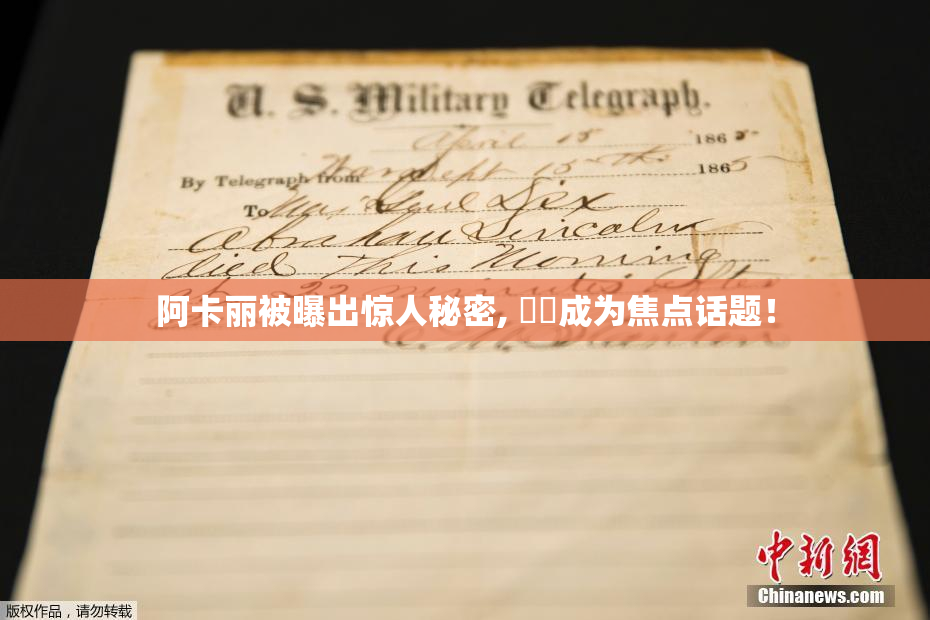 U. S. Military Telegraph.
April 15 1865
By Telegraph from War Dept 15th 1865
To Maj Genl Dix
Abraham Lincoln
died This Morning
at 22 minutes after
阿卡丽被曝出惊人秘密, 成为焦点话题！
E. M. Stanton
中新网
Chinanews.com
版权作品，请勿转载